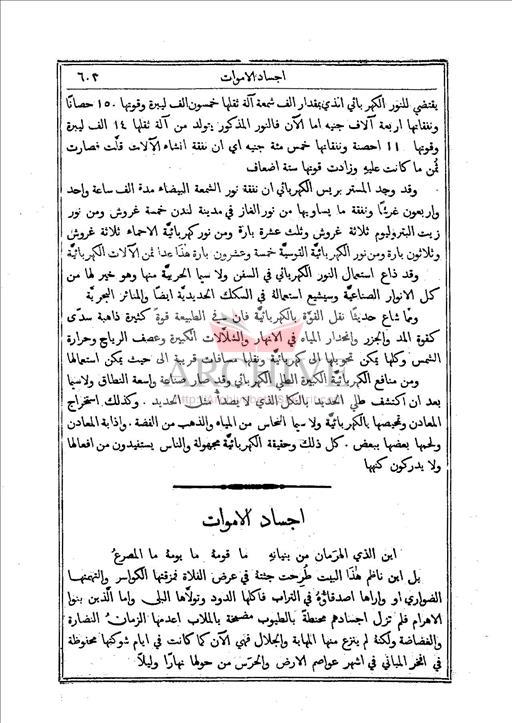 اجساد الاموات ٦٠٣
يقتضي للنور الكهربائي الذي بمقدار الف شمعة آلة ثقلها خمسون الف ليبرة وقوتها ١٥٠ حصانًا
ونفقاتها اربعة آلاف جنيه اما الآن فالنور المذكور يتولد من آلة ثقلها ١٤ الف ليبرة
وقوتها ١١ احصنة ونفقاتها خمس مئة جنيه اي ان نفقة انشاء الآلات قلّت فصارت
ثمن ما كانت عليهِ وزادت قوتها ستة اضعاف
وقد وجد المستر بريس الكهربائي ان نفقة نور الشمعة البيضاء مدة الف ساعة واحد
واربعون غرشًا ونفقة ما يساويها من نور الغاز في مدينة لندن خمسة غروش ومن نور
زيت البتروليوم ثلاثة غروش وثلث عشرة بارة ومن نور كهربائيَّة الاحماء ثلاثة غروش
وثلاثون بارة ومن نور الكهربائية القوسيَّة خمسة وعشرون بارة هذا عدا ثمن الآلات الكهربائية
وقد ذاع استعمال النور الكهربائي في السفن ولا سيما الحربيَّة منها وهو خير لها من
كل الانوار الصناعيَّة وسيشيع استعمالهُ في السكك الحديديَّة ايضًا والمنائر البحرية
ومما شاع حديثًا نقل القوَّة بالكهربائيَّة فان في الطبيعة قوةً كثيرة ذاهبة سدًى
كقوة المد والجزر وانحدار المياه في الانهار والشلَّالات الكبيرة وعصف الرياح وحرارة
الشمس وكلها يمكن تحويلها الى كهربائيَّة ونقلها مسافات قريبة الى حيث يمكن استعمالها
ومن منافع الكهربائيَّة الكبيرة الطلي الكهربائي وقد صار صناعة واسعة النطاق ولاسيما
بعد ان اكتشف طلي الحديد بالنكل الذي لا يصدأ مثل الحديد . وكذلك استخراج
المعادن وتمحيصها بالكهربائيَّة ولا سيما النحاس من المياه والذهب من الفضة . واذابة المعادن
ولحمها بعضها ببعض . كل ذلك وحقيقة الكهربائيَّة مجهولة والناس يستفيدون من افعالها
ولا يدركون كنهها
اجساد الاموات
اين الذي الهرمان من بنيانهِ ما قومهُ ما يومهُ ما المصرعُ
بل اين ناظم هذا البيت طُرحت جثته في عرض الفلاة فمزقتها الكواسر والتهمتها
الضواري او واراها اصدقاؤهُ في التراب فاكلها الدود وتولّاها البلى واما الَّذين بنوا
الاهرام فلم تزل اجسادهم محنطةً بالطيوب مضمخة بالملاب اعدمها الزمان النضارة
والغضاضة ولكنهُ لم ينتزع منها المهابة والجلال فهي الآن كما كانت في ايام شوكتها محفوظة
في افخر المباني في اشهر عواصم الارض والحرَس من حولها نهارًا وليلًا
ARCHIVE